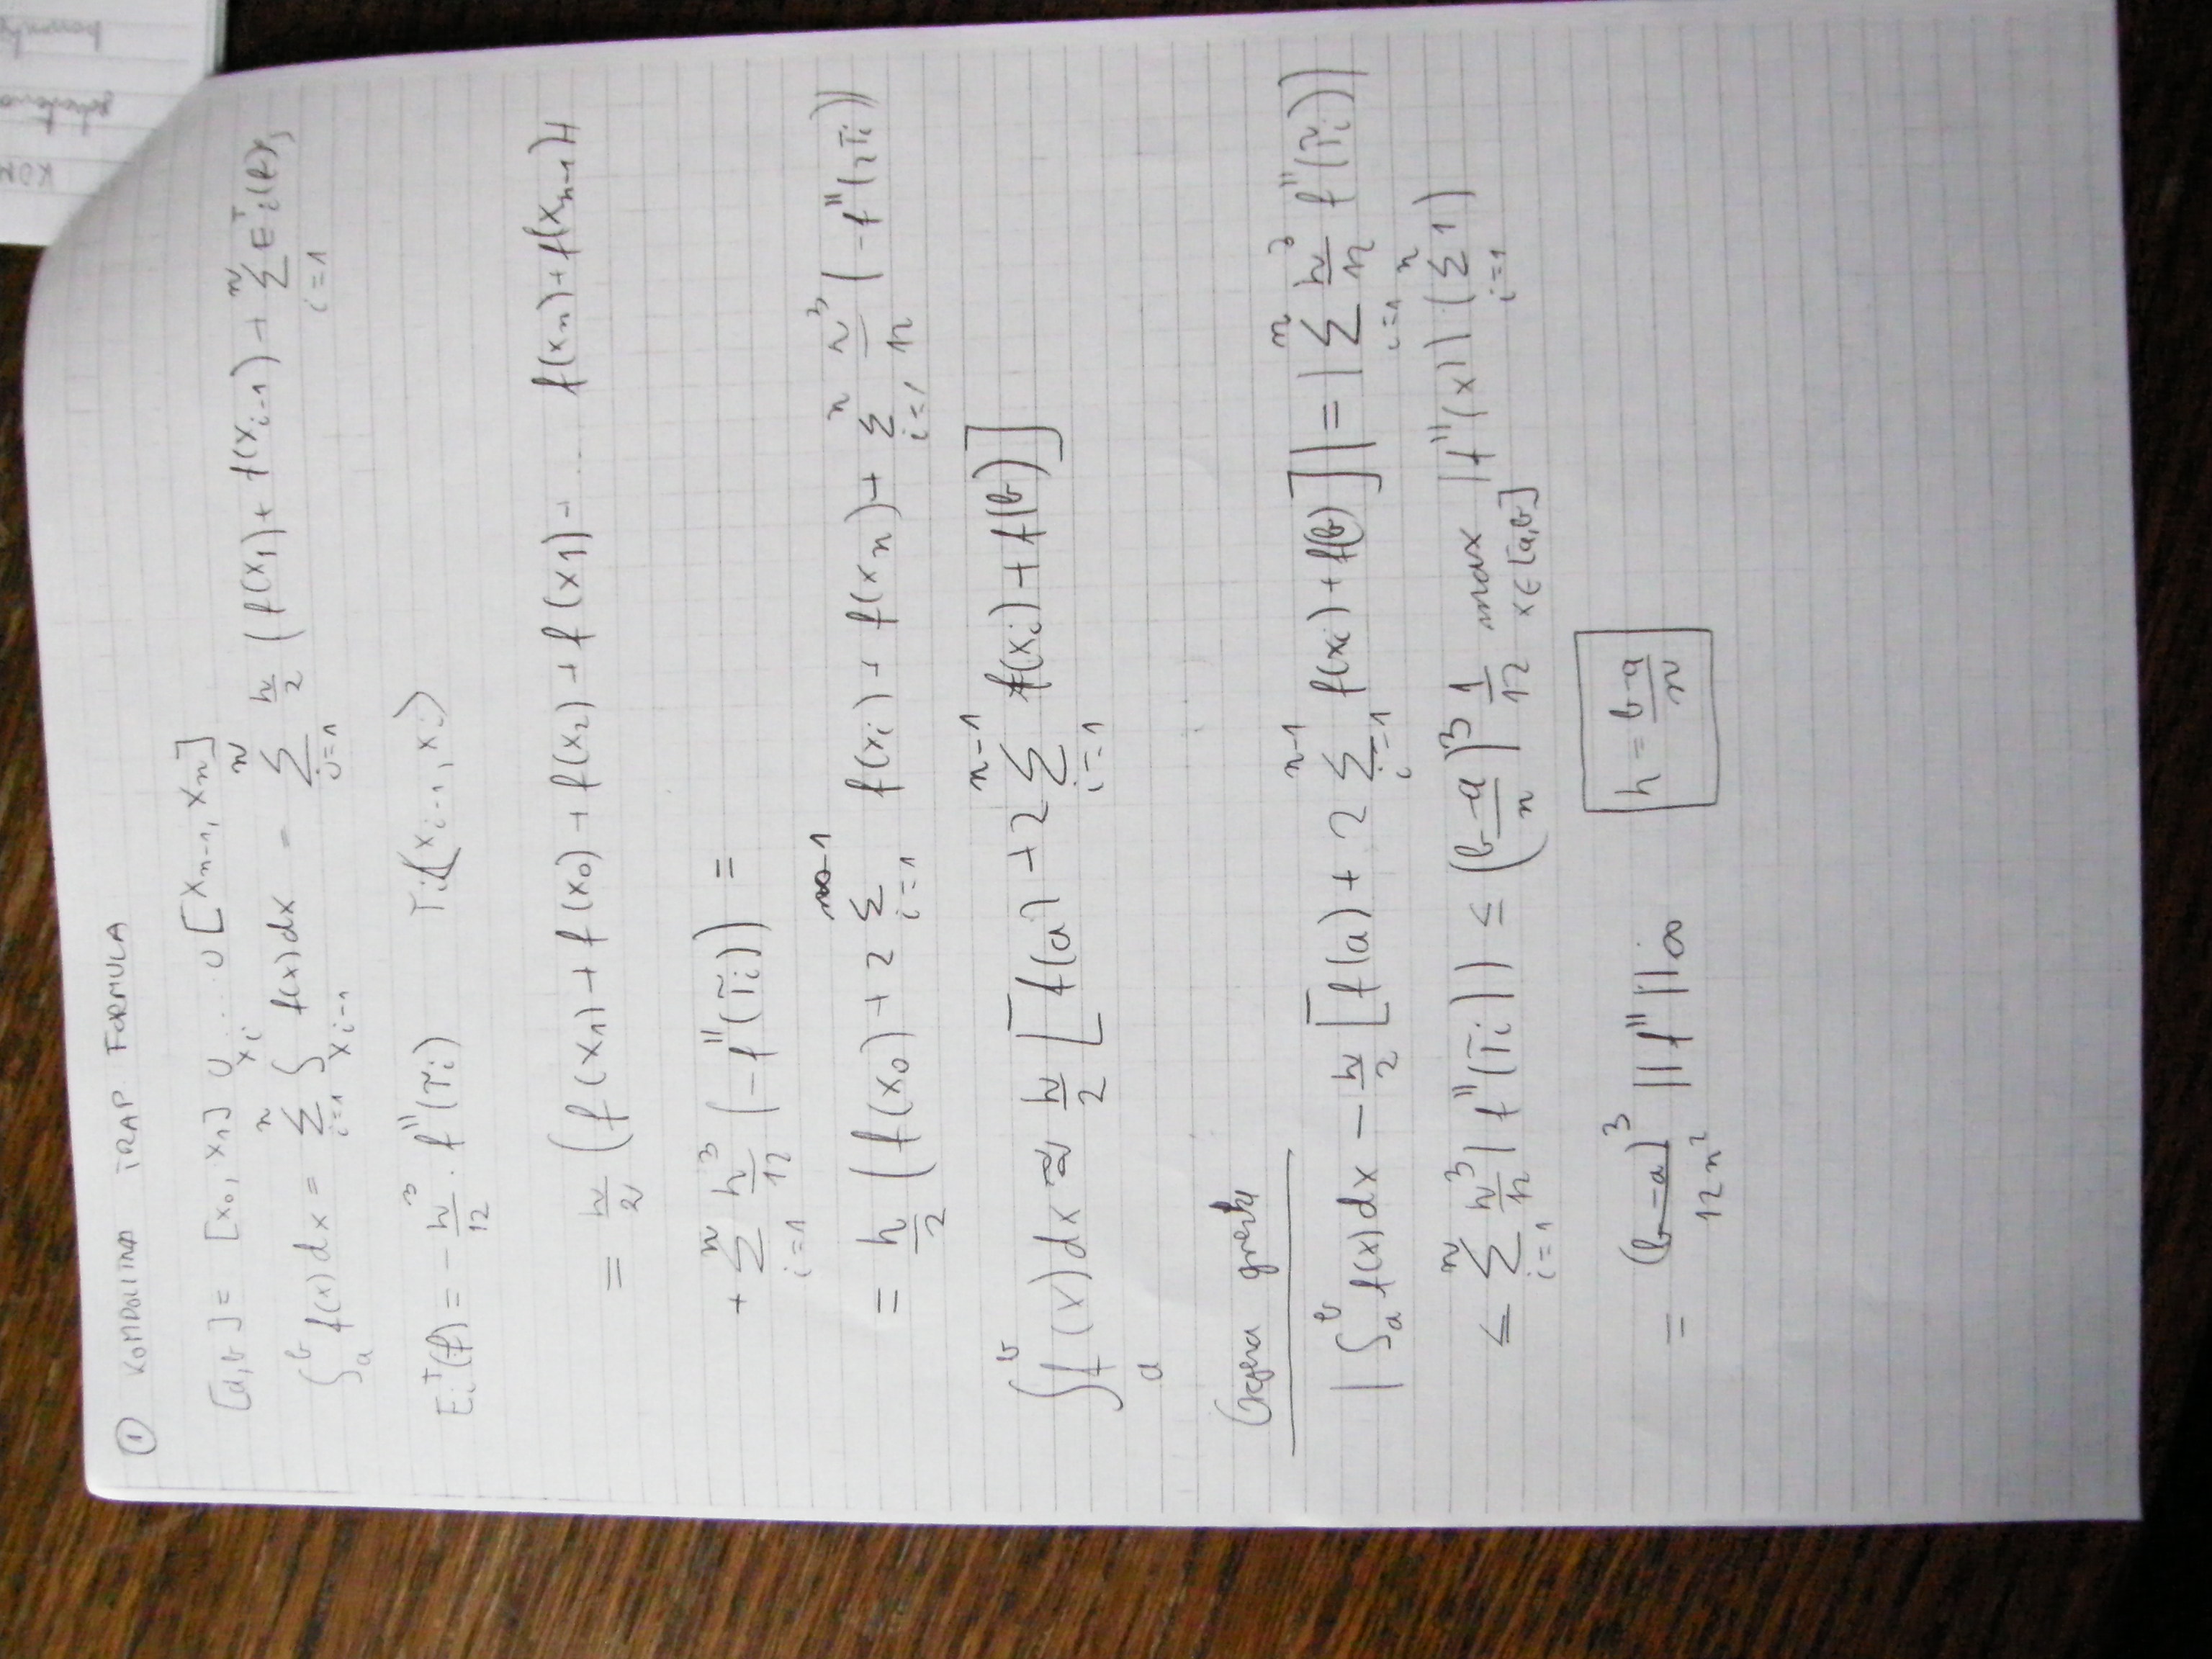 ① KOMPOLIRANA TRAP FORMULA
[a,b] = [x₀, x₁] ∪ .... ∪ [xₙ₋₁, xₙ]
∫ₐᵇ f(x)dx = Σᵢ₌₁ⁿ ∫_{xᵢ₋₁}^{xᵢ} f(x)dx = Σᵢ₌₁ⁿ h/2 (f(x₁) + f(xᵢ₋₁) + Σᵢ₌₁ⁿ Eᵢᵀ(f),
Eᵢᵀ(f) = - h³/12 · f''(τᵢ) τᵢ∈(xᵢ₋₁, xᵢ)
= h/2 (f(x₁) + f(x₀) + f(x₂) + f(x₁) + ... f(xₙ) + f(xₙ₋₁) +
+ Σᵢ₌₁ⁿ h³/12 (-f''(τᵢ)) =
= h/2 (f(x₀) + 2 Σᵢ₌₁ⁿ⁻¹ f(xᵢ) + f(xₙ) + Σᵢ₌₁ⁿ h³/12 (-f''(τᵢ))
∫ₐᵇ f(x)dx ≈ h/2 [f(a) + 2 Σᵢ₌₁ⁿ⁻¹ f(xᵢ) + f(b)]
Ocjena greške
| ∫ₐᵇ f(x)dx - h/2 [f(a) + 2 Σᵢ₌₁ⁿ⁻¹ f(xᵢ) + f(b)] | = | Σᵢ₌₁ⁿ h³/12 f''(τᵢ) |
≤ Σᵢ₌₁ⁿ h³/12 | f''(τᵢ) | ≤ ((b-a)/n)³ 1/12 max_{x∈[a,b]} |f''(x)| (Σᵢ₌₁ⁿ 1)
= (b-a)³/12n² ||f''||∞ h = b-a/n
KOM